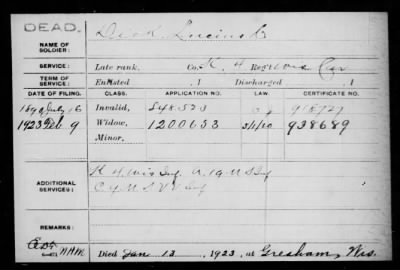 DEAD.
NAME OF SOLDIER: Dick, Lucius
SERVICE: Late rank, Co. K, 4 Reg't Wis Cav
TERM OF SERVICE: Enlisted , 1 Discharged , 1
DATE OF FILING. CLASS. APPLICATION NO. LAW. CERTIFICATE NO.
1890 July 16 Invalid, 548,523
1923 Feb 9 Widow, 1200653 5/1/20 938689
Minor,
ADDITIONAL SERVICES: K 4 Wis Inf. A. 19 U S Inf
C 4 U S V V Inf
REMARKS:
Died Jan 13, 1923, at Gresham, Wis.